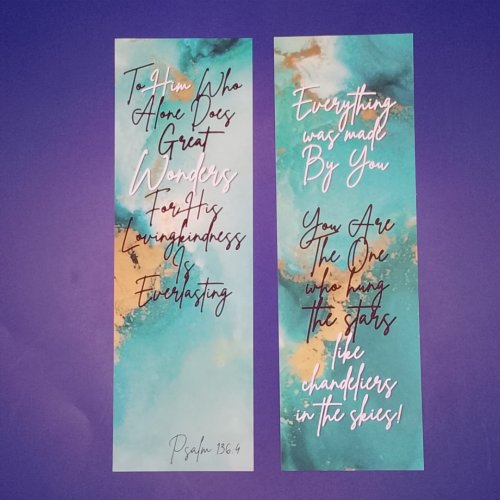 To Him Who
Alone Does
Great
Wonders
For His
Lovingkindness
Is
Everlasting
Psalm 136:4
Everything
was made
By You
You Are
The One
who hung
the stars
like
chandeliers
in the skies!